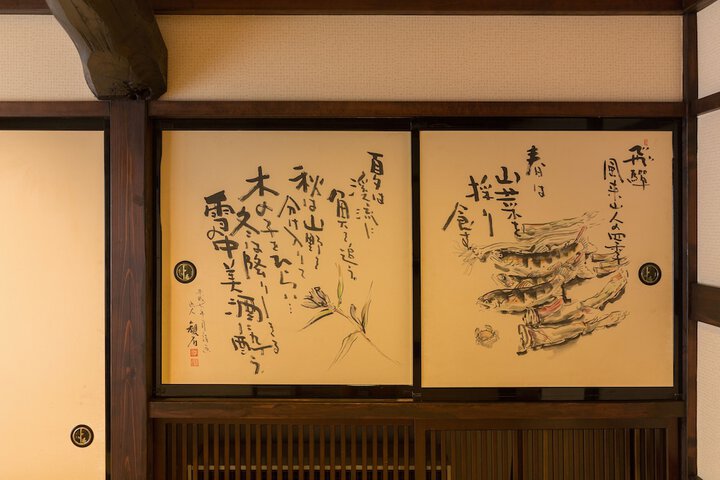 飛騨
風来山人の四季
春は
山菜を
採り
食す
夏は
渓流に
魚を追う
秋は山野を
分け入りて
木の子をひらい…
冬は降りしきる
雪の中美酒に酔う